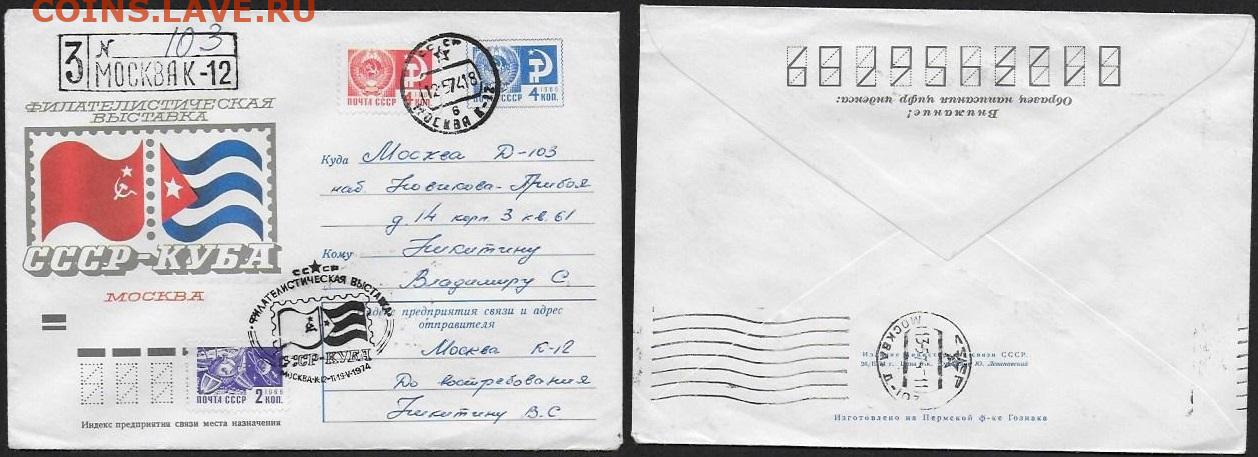 COINS.LAVE.RU
З N 103
МОСКВА К-12
ФИЛАТЕЛИСТИЧЕСКАЯ
ВЫСТАВКА
СССР-КУБА
МОСКВА
ПОЧТА СССР 4 КОП.
1966
4 КОП.
ПОЧТА СССР
СССР
МОСКВА К-12
Куда Москва Д-103
наб. Новикова-Прибоя
д. 14 корп. 3 кв. 61
Кому Никитину
Владимиру С.
предприятия связи и адрес
отправителя
Москва К-12
До востребования
Никитину В.С
СССР
ФИЛАТЕЛИСТИЧЕСКАЯ ВЫСТАВКА
СССР-КУБА
МОСКВА-К-12-11-19-V-1974
1966
ПОЧТА СССР 2 КОП.
Индекс предприятия связи места назначения
0123456789
Образец написания цифр индекса:
Внимание!
МОСКВА
связи СССР.
Ю. Левиновский
Изготовлено на Пермской ф-ке Гознака